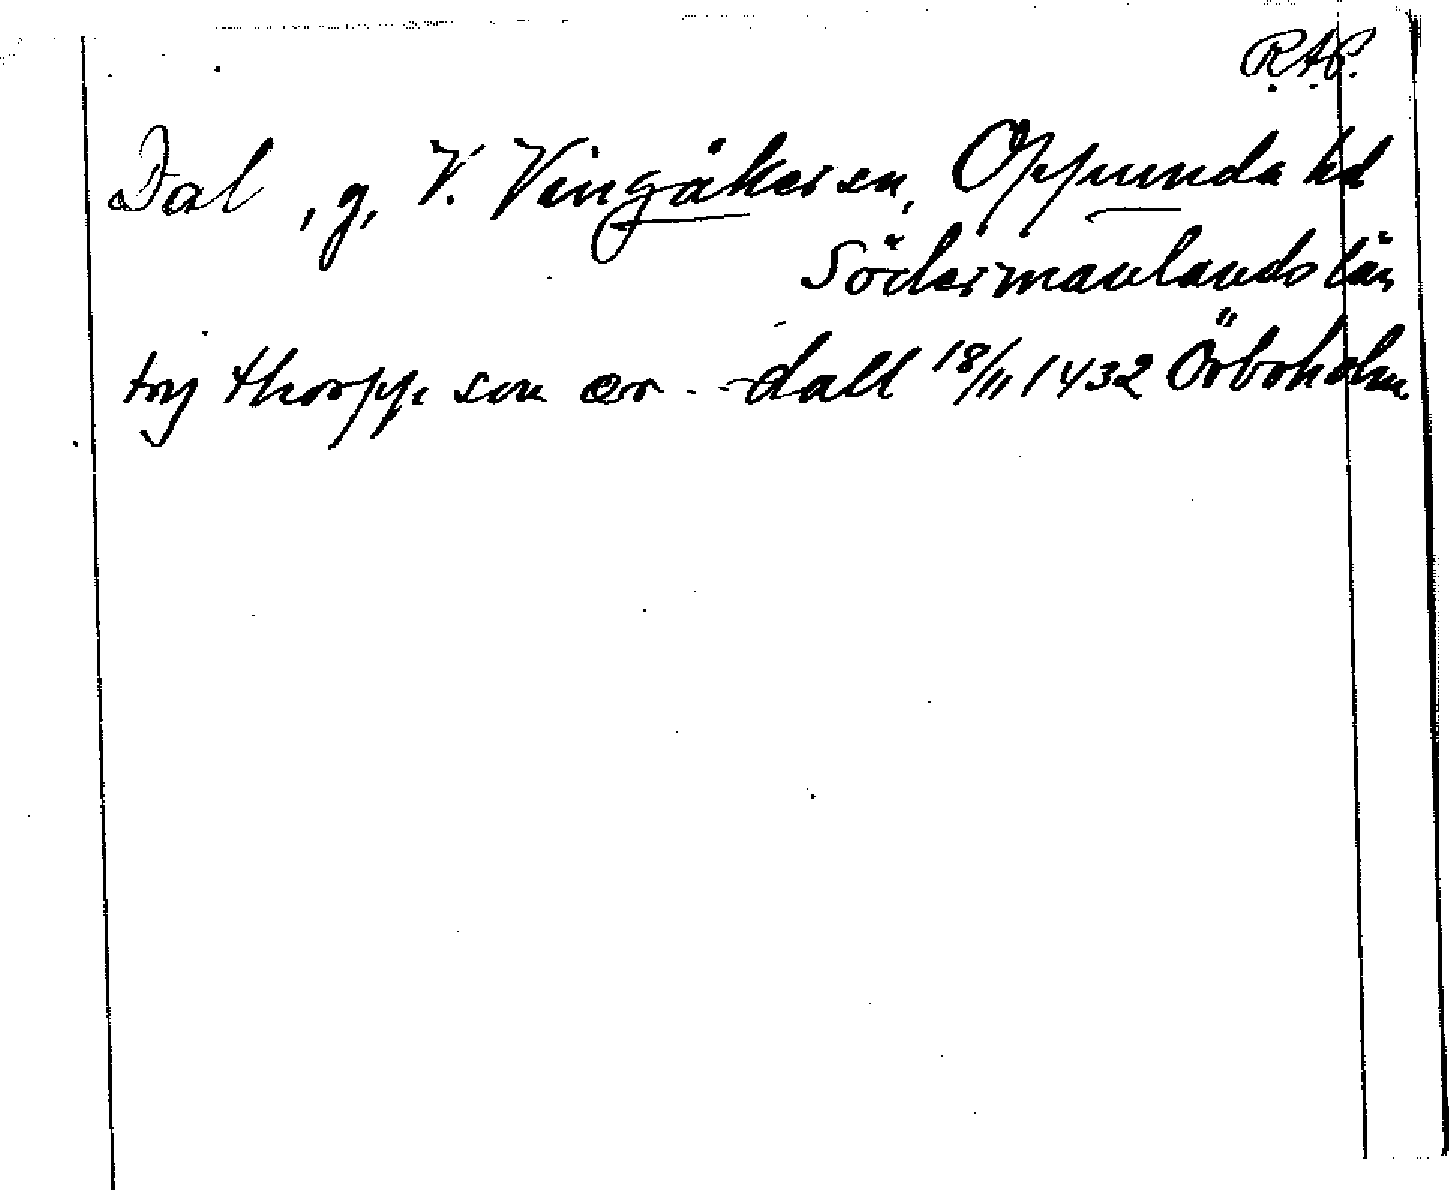 R.A.P.
Dal, g, V. Vingåker sn, Oppunda hd
Södermanlands län
trij thorpp som ær - - dall 18/11 1432 Örboholm